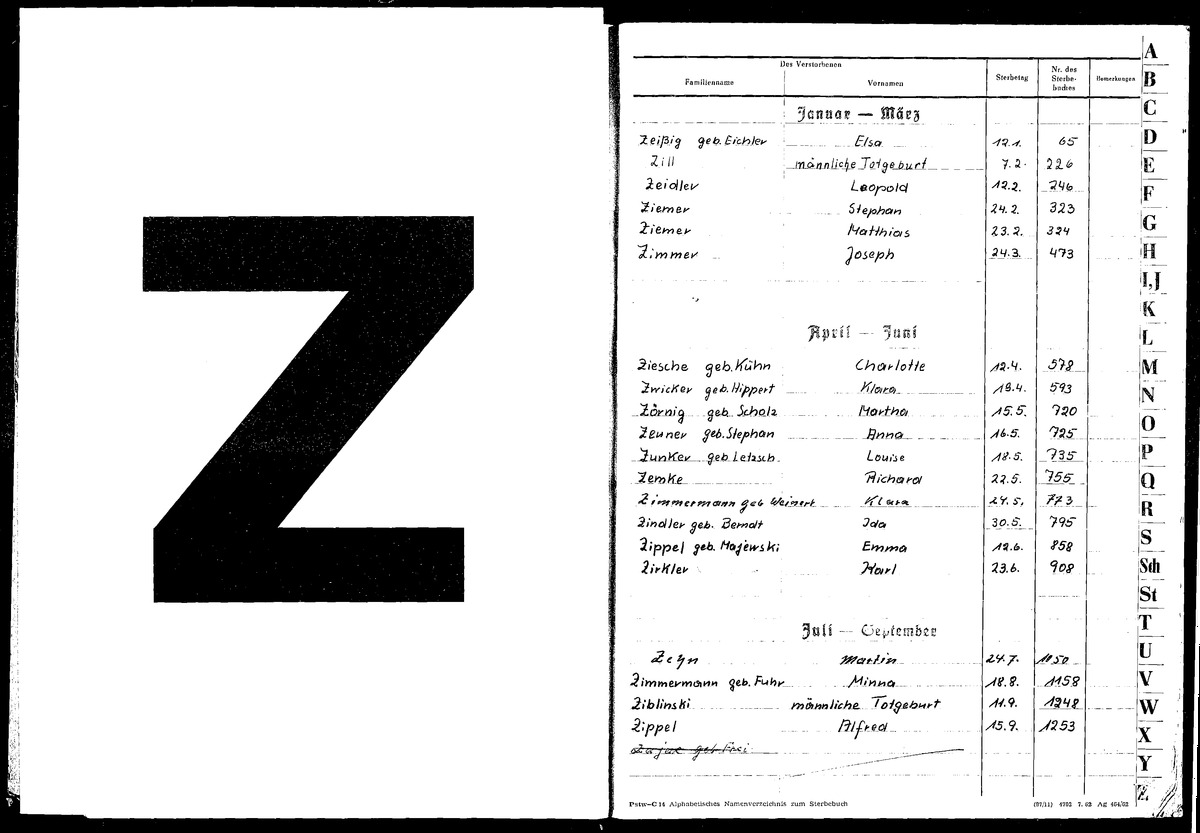 Z
Des Verstorbenen
Familienname Vornamen Sterbetag Nr. des Sterbe-buches Bemerkungen
Januar — März
Zeißig geb. Eichler Elsa 12.1. 65
Zill männliche Totgeburt 7.2. 226
Zeidler Leopold 12.2. 246
Ziemer Stephan 24.2. 323
Ziemer Matthias 23.2. 324
Zimmer Joseph 24.3. 473
April — Juni
Ziesche geb. Kühn Charlotte 12.4. 578
Zwicker geb. Hippert Klara 18.4. 593
Zörnig geb. Scholz Martha 15.5. 720
Zeuner geb. Stephan Anna 16.5. 725
Zunker geb. Letzsch Louise 18.5. 735
Zemke Richard 22.5. 755
Zimmermann geb Weinert Klara 24.5. 773
Zindler geb. Berndt Ida 30.5. 795
Zippel geb. Majewski Emma 12.6. 858
Zirkler Karl 23.6. 908
Juli — September
Zeyn Martin 24.7. 1050
Zimmermann geb. Fuhr Minna 18.8. 1158
Ziblinski männliche Totgeburt 11.9. 1248
Zippel Alfred 15.9. 1253
Zajac geb Frei
Pstw-C 14 Alphabetisches Namenverzeichnis zum Sterbebuch (87/11) 4792 7. 62 Ag 464/62
A
B
C
D
E
F
G
H
I,J
K
L
M
N
O
P
Q
R
S
Sch
St
T
U
V
W
X
Y
Z